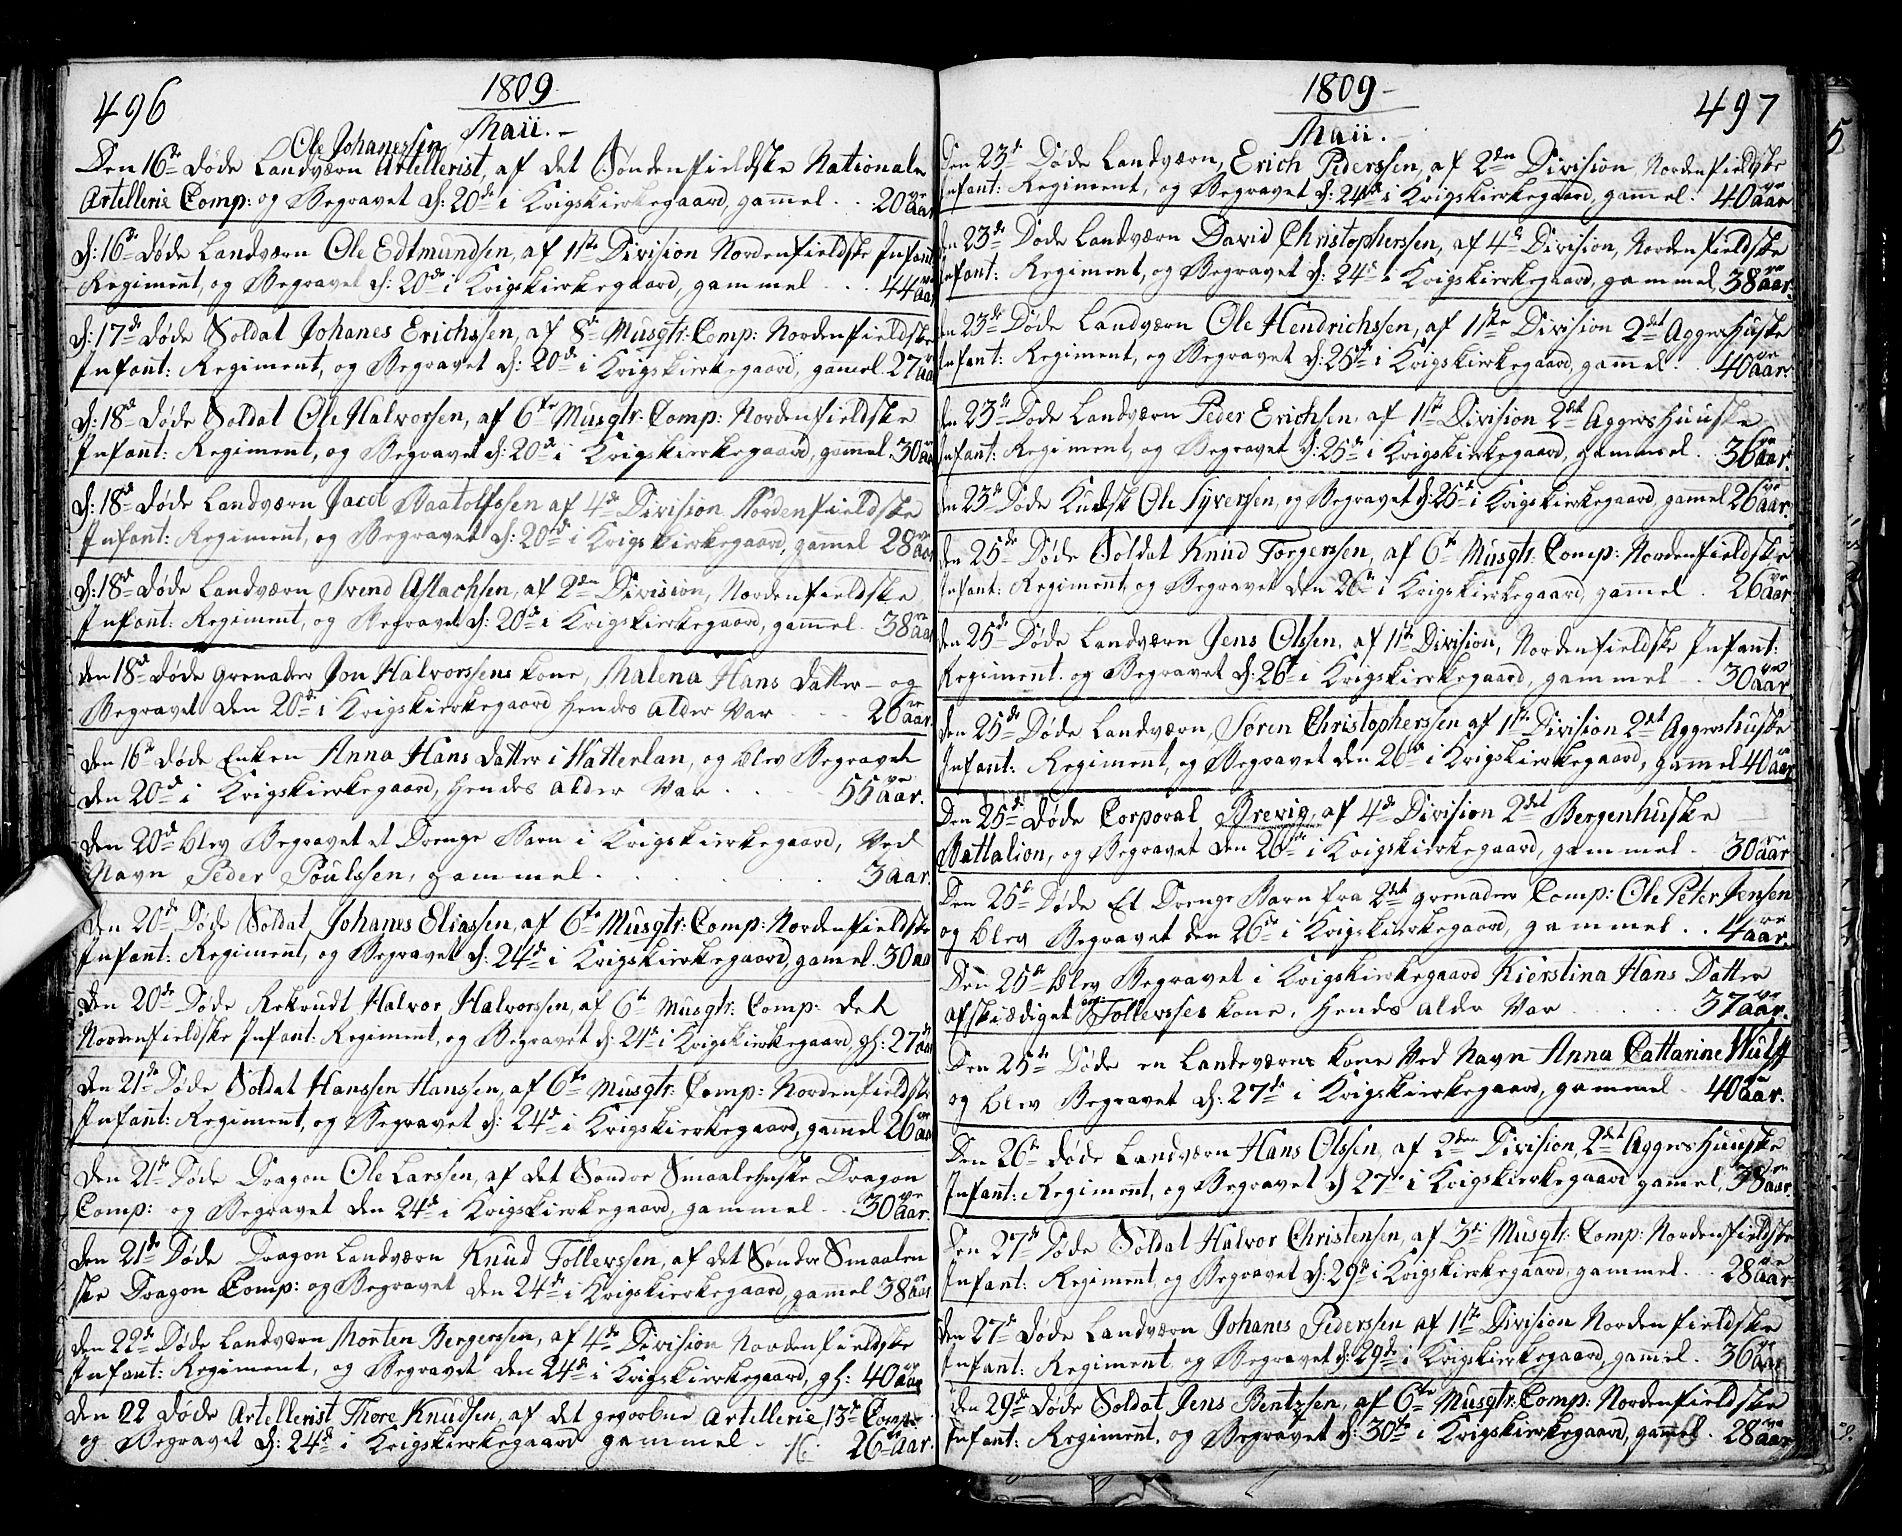 496
1809
Maii.
Ole Johanessen
Den 16de Døde Landværn Artellerist, af det Søndenfieldske Nationale
Artellerie Comp: og Begravet d: 20de i Krigskirkegaard, gammel . . 20 aar
d: 16de Døde Landværn Ole Edtmundsen, af 1ste Division Nordenfieldske Infant:
Regiment, og Begravet d: 20de i Krigskirkegaard, gammel . . 44 aar
d: 17de Døde Soldat Johanes Erichssen, af 8de Musqtr: Comp: Nordenfieldske
Infant: Regiment, og Begravet d: 20de i Krigskirkegaard, gamel. 27 aar
d: 18de Døde Soldat Ole Halvorsen, af 6te Musqtr: Comp: Nordenfieldske
Infant: Regiment, og Begravet d: 20de i Krigskirkegaard, gamel. 30 aar
d: 18de Døde Landværn Jacob Baatolfssen af 4de Division Nordenfieldske
Infant: Regiment, og Begravet d: 20de i Krigskirkegaard, gamel 28 aar
d: 18de Døde Landværn Svend Aslachsen, af 2den Division, Nordenfieldske
Infant: Regiment, og Begravet d: 20de i Krigskirkegaard, gamel. 38 aar
den 18de Døde Grenader Jon Halvorssens kone, Malena Hans Datter - og
Begravet den 20de i Krigskirkegaard Hendes Alder Var . . . 26 aar.
den 16de Døde Enken Anna Hans Datter i Watterlan, og blev Begravet
den 20de i Krigskirkegaard, Hendes alder Var . . . 55 aar.
den 20de blev Begravet et Drenge Barn i Krigskirkegaard, Ved
Navn Peder Poulssen, gammel . . . . . 3 aar.
den 20de Døde Soldat Johanes Eliassen, af 6te Musqtr: Comp: Nordenfieldske
Infant: Regiment, og Begravet d: 24de i Krigskirkegaard, gamel. 30 aar
den 20de Døde Rekrudt Halvor Halvorssen, af 6te Musqtr: Comp: det
Nordenfieldske Infant: Regiment, og Begravet d: 24de i Krigskirkegaard, gl: 27 aar
den 21de Døde Soldat Hanssen Hanssen, af 6te Musqtr: Comp: Nordenfieldske
Infant: Regiment, og Begravet d: 24de i Krigskirkegaard, gamel 26 aar
den 21de Døde Dragon Ole Larssen, af det Søndre Smaalehnske Dragon
Comp: og Begravet den 24de i Krigskirkegaard, gammel . . 30 aar.
den 21de Døde Dragon Landværn Knud Tollerssen, af det Søndre Smaalen
ske Dragon Comp: og Begravet den 24de i Krigskirkegaard, gamel 38 aar
den 22de Døde Landværn Morten Bergerssen, af 4de Division Nordenfieldske
Infant: Regiment, og Begravet den 24de i Krigskirkegaard, gl: 40 aar
den 22 Døde Artellerist Thore Knudsen, af det gevorbne Artellerie 13de Comp:
og Begravet d: 24de i Krigskirkegaard gammel . 26 aar.
1809
497
Maii.
Den 23de Døde Landværn, Erich Pederssen, af 2den Division Nordenfieldske
Infant: Regiment, og Begravet d: 24de i Krigskirkegaard, gammel. 40 aar
den 23de Døde Landværn David Christopherssen, af 4de Division, Nordenfieldske
Infant: Regiment, og Begravet d: 24de i Krigskirkegaard, gammel, 38 aar.
den 23de Døde Landværn Ole Hendrichssen, af 1ste Division 2det Aggershuske
Infant: Regiment, og Begravet d: 25de i Krigskirkegaard, gammel. . 40 aar.
den 23de Døde Landværn Peder Erichsen, af 1ste Division 2det Aggershuuske
Infant: Regiment, og Begravet d: 25de i Krigskirkegaard, gammel . . 36 aar.
den 23de Døde Kudsk Ole Syversen, og Begravet d: 25de i Krigskirkegaard, gamel 26 aar.
den 25de Døde Soldat Knud Torgerssen, af 6te Musqtr: Comp: Nordenfieldske
Infant: Regiment, og Begravet den 26de i Krigskirkegaard, gammel . 26 aar
den 25de Døde Landværn Jens Olssen, af 1ste Division, Nordenfieldske Infant:
Regiment. og Begravet d: 26de i Krigskirkegaard, gammel . . 30 aar
den 25de Døde Landværn Søren Christopherssen af 1ste Division 2det Aggershuske
Infant: Regiment, og Begravet den 26de i Krigskirkegaard, gamel 40 aar
Den 25de Døde Corporal Brevig, af 4de Division 2det Bergenhuske
Battalion, og Begravet den 26de i Krigskirkegaard, gammel . 30 aar
Den 25de Døde Et Drenge Barn fra 2det grenader Comp: Ole Peter Jensen
og blev Begravet den 26de i Krigskirkegaard, gammel . . 4 aar.
Den 25de blev Begravet i Krigskirkegaard Kierstina Hans Datter
afskiædiget Tollerssens kone, Hendes alder Var . . . 37 aar.
Den 25de Døde en Landeværns kone Ved Navn Anna Cattarine Wulff
og blev Begravet d: 27de i Krigskirkegaard, gammel . 40 aar.
Den 26de Døde Landværn Hans Olssen, af 2den Division, 2det Aggershuuske
Infant: Regiment, og Begravet d 27de i Krigskirkegaard gamel, 38 aar.
Den 27de Døde Soldat Halvor Christensen, af 3de Musqtr: Comp: Nordenfieldske
Infant: Regiment, og Begravet d: 29de i Krigskirkegaard, gammel . . 28 aar
den 27de Døde Landværn Johanes Pederssen af 1ste Division Nordenfieldske
Infant: Regiment, og Begravet d: 29de i Krigskirkegaard, gamel. . 36 aar
den 29de Døde Soldat Jens Bentzsen, af 6te Musqtr: Comp: Nordenfieldske
Infant: Regiment, og Begravet d: 30de i Krigskirkegaard, gamel . 28 aar